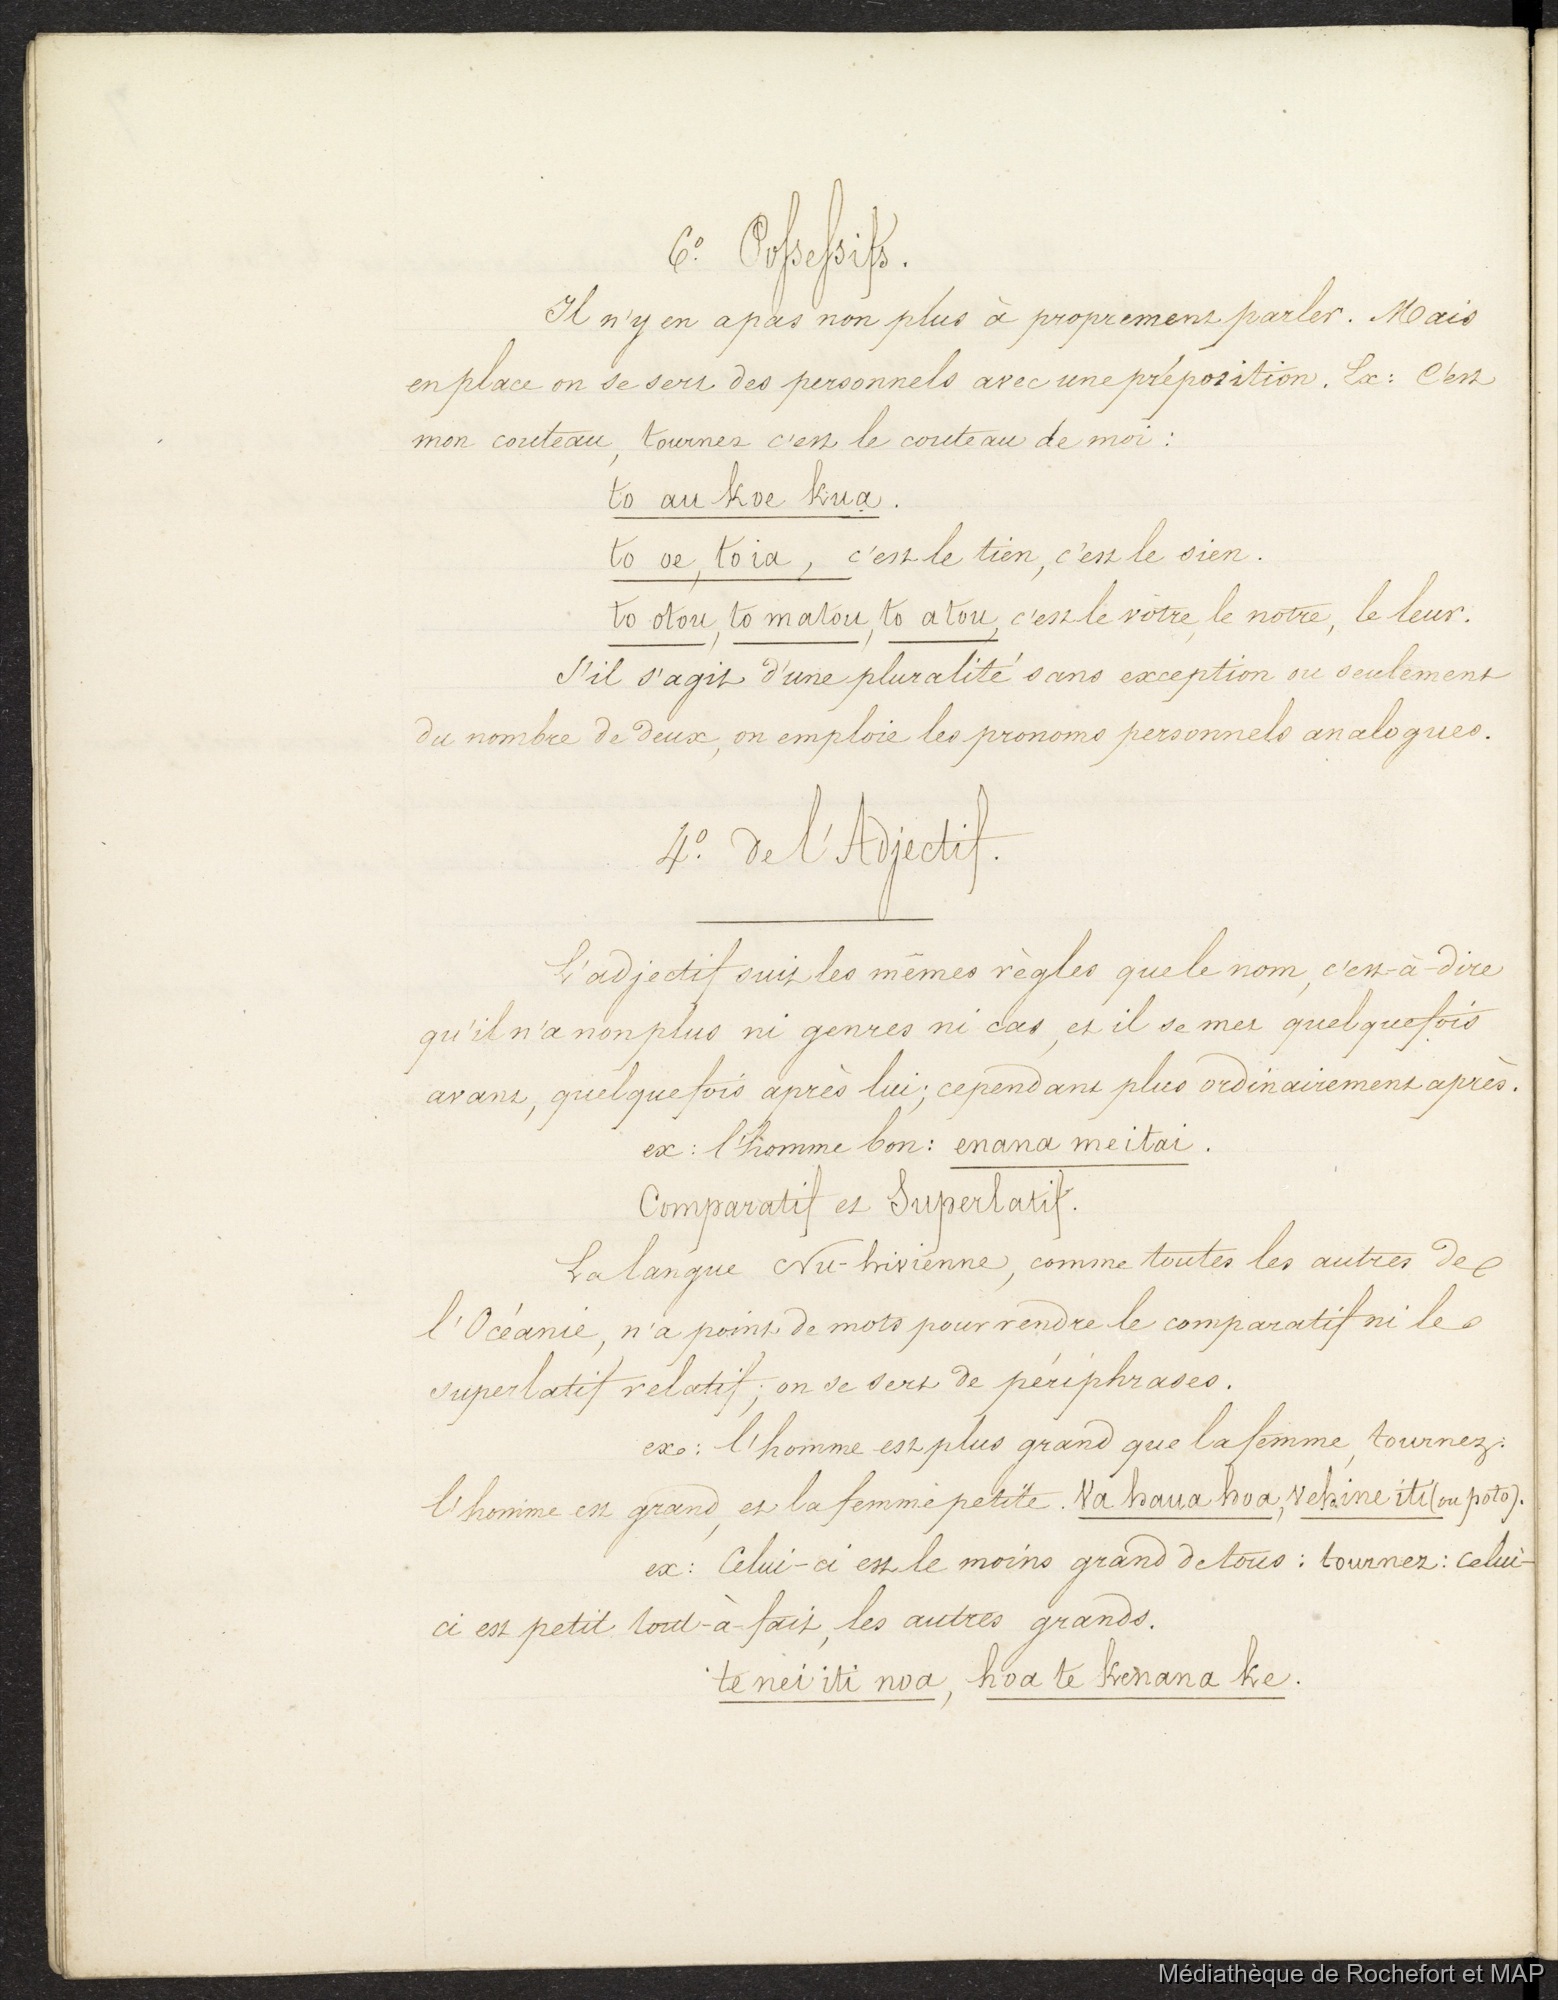 6.° Possessifs.
Il n'y en a pas non plus à proprement parler. Mais
en place on se sert des personnels avec une préposition. Ex: C'est
mon couteau, tournez c'est le couteau de moi :
to au koe kua.
to oe, to ia, c'est le tien, c'est le sien.
to otou, to matou, to atou, c'est le vôtre, le notre, le leur.
S'il s'agit d'une pluralité sans exception ou seulement
du nombre de deux, on emploie les pronoms personnels analogues.
4.° de l'Adjectif.
L'adjectif suit les mêmes règles que le nom, c'est-à-dire
qu'il n'a non plus ni genres ni cas, et il se met quelquefois
avant, quelquefois après lui; cependant plus ordinairement après.
ex: l'homme bon: enana meitai.
Comparatif et Superlatif.
La langue Nu-hivienne, comme toutes les autres de
l'Océanie, n'a point de mots pour rendre le comparatif ni le
superlatif relatif; on se sert de périphrases.
ex: l'homme est plus grand que la femme, tournez:
l'homme est grand, et la femme petite. Va haua hoa, vehine iti (ou poto).
ex: Celui-ci est le moins grand de tous: tournez: celui-
ci est petit tout-à-fait, les autres grands.
te nei iti noa, hoa te kenana ke.
Médiathèque de Rochefort et MAP